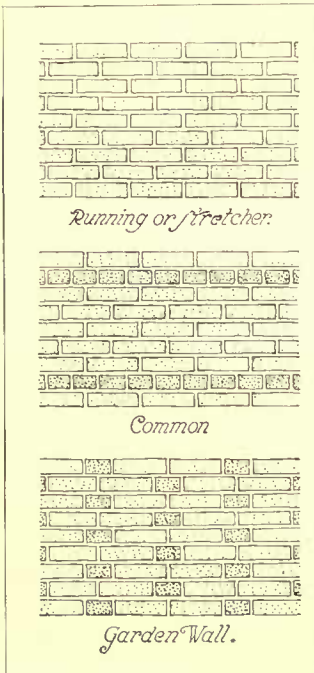 Running or Stretcher.
Common
Garden Wall.